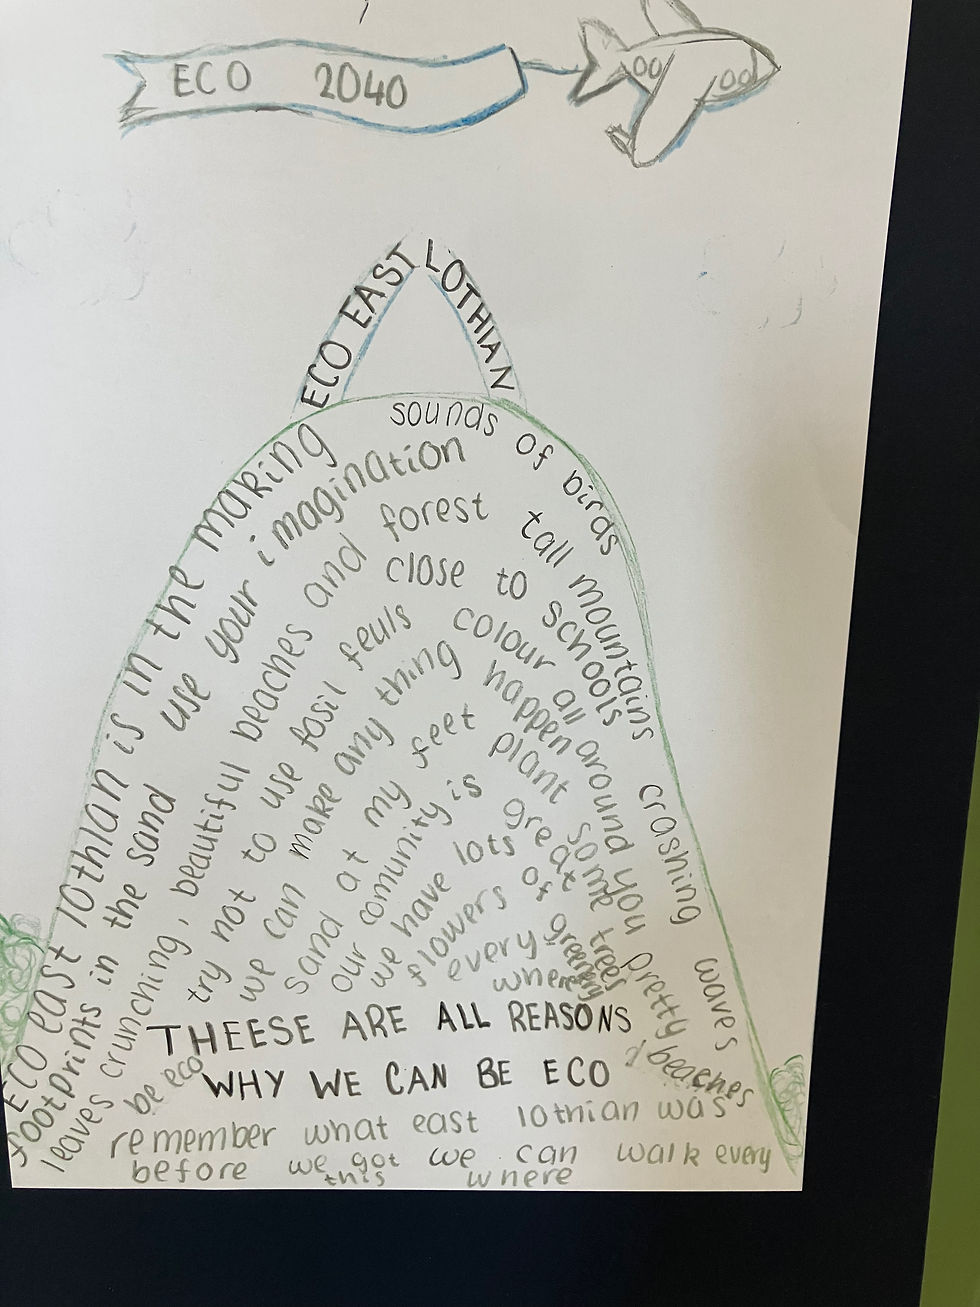 ECO 2040
ECO EAST LOTHIAN
ECO east lothian is in the making sounds of birds
footprints in the sand use your imagination tall mountains crashing waves
leaves crunching, beautiful beaches and forest close to schools
be eco try not to use fosil feuls colour all around you pretty beaches
we can make any thing happen
sand at my feet plant some trees
our comunity is great
we have lots of greenery
flowers
every
where
THEESE ARE ALL REASONS
WHY WE CAN BE ECO
remember what east lothian was
before we got we can walk every
this where